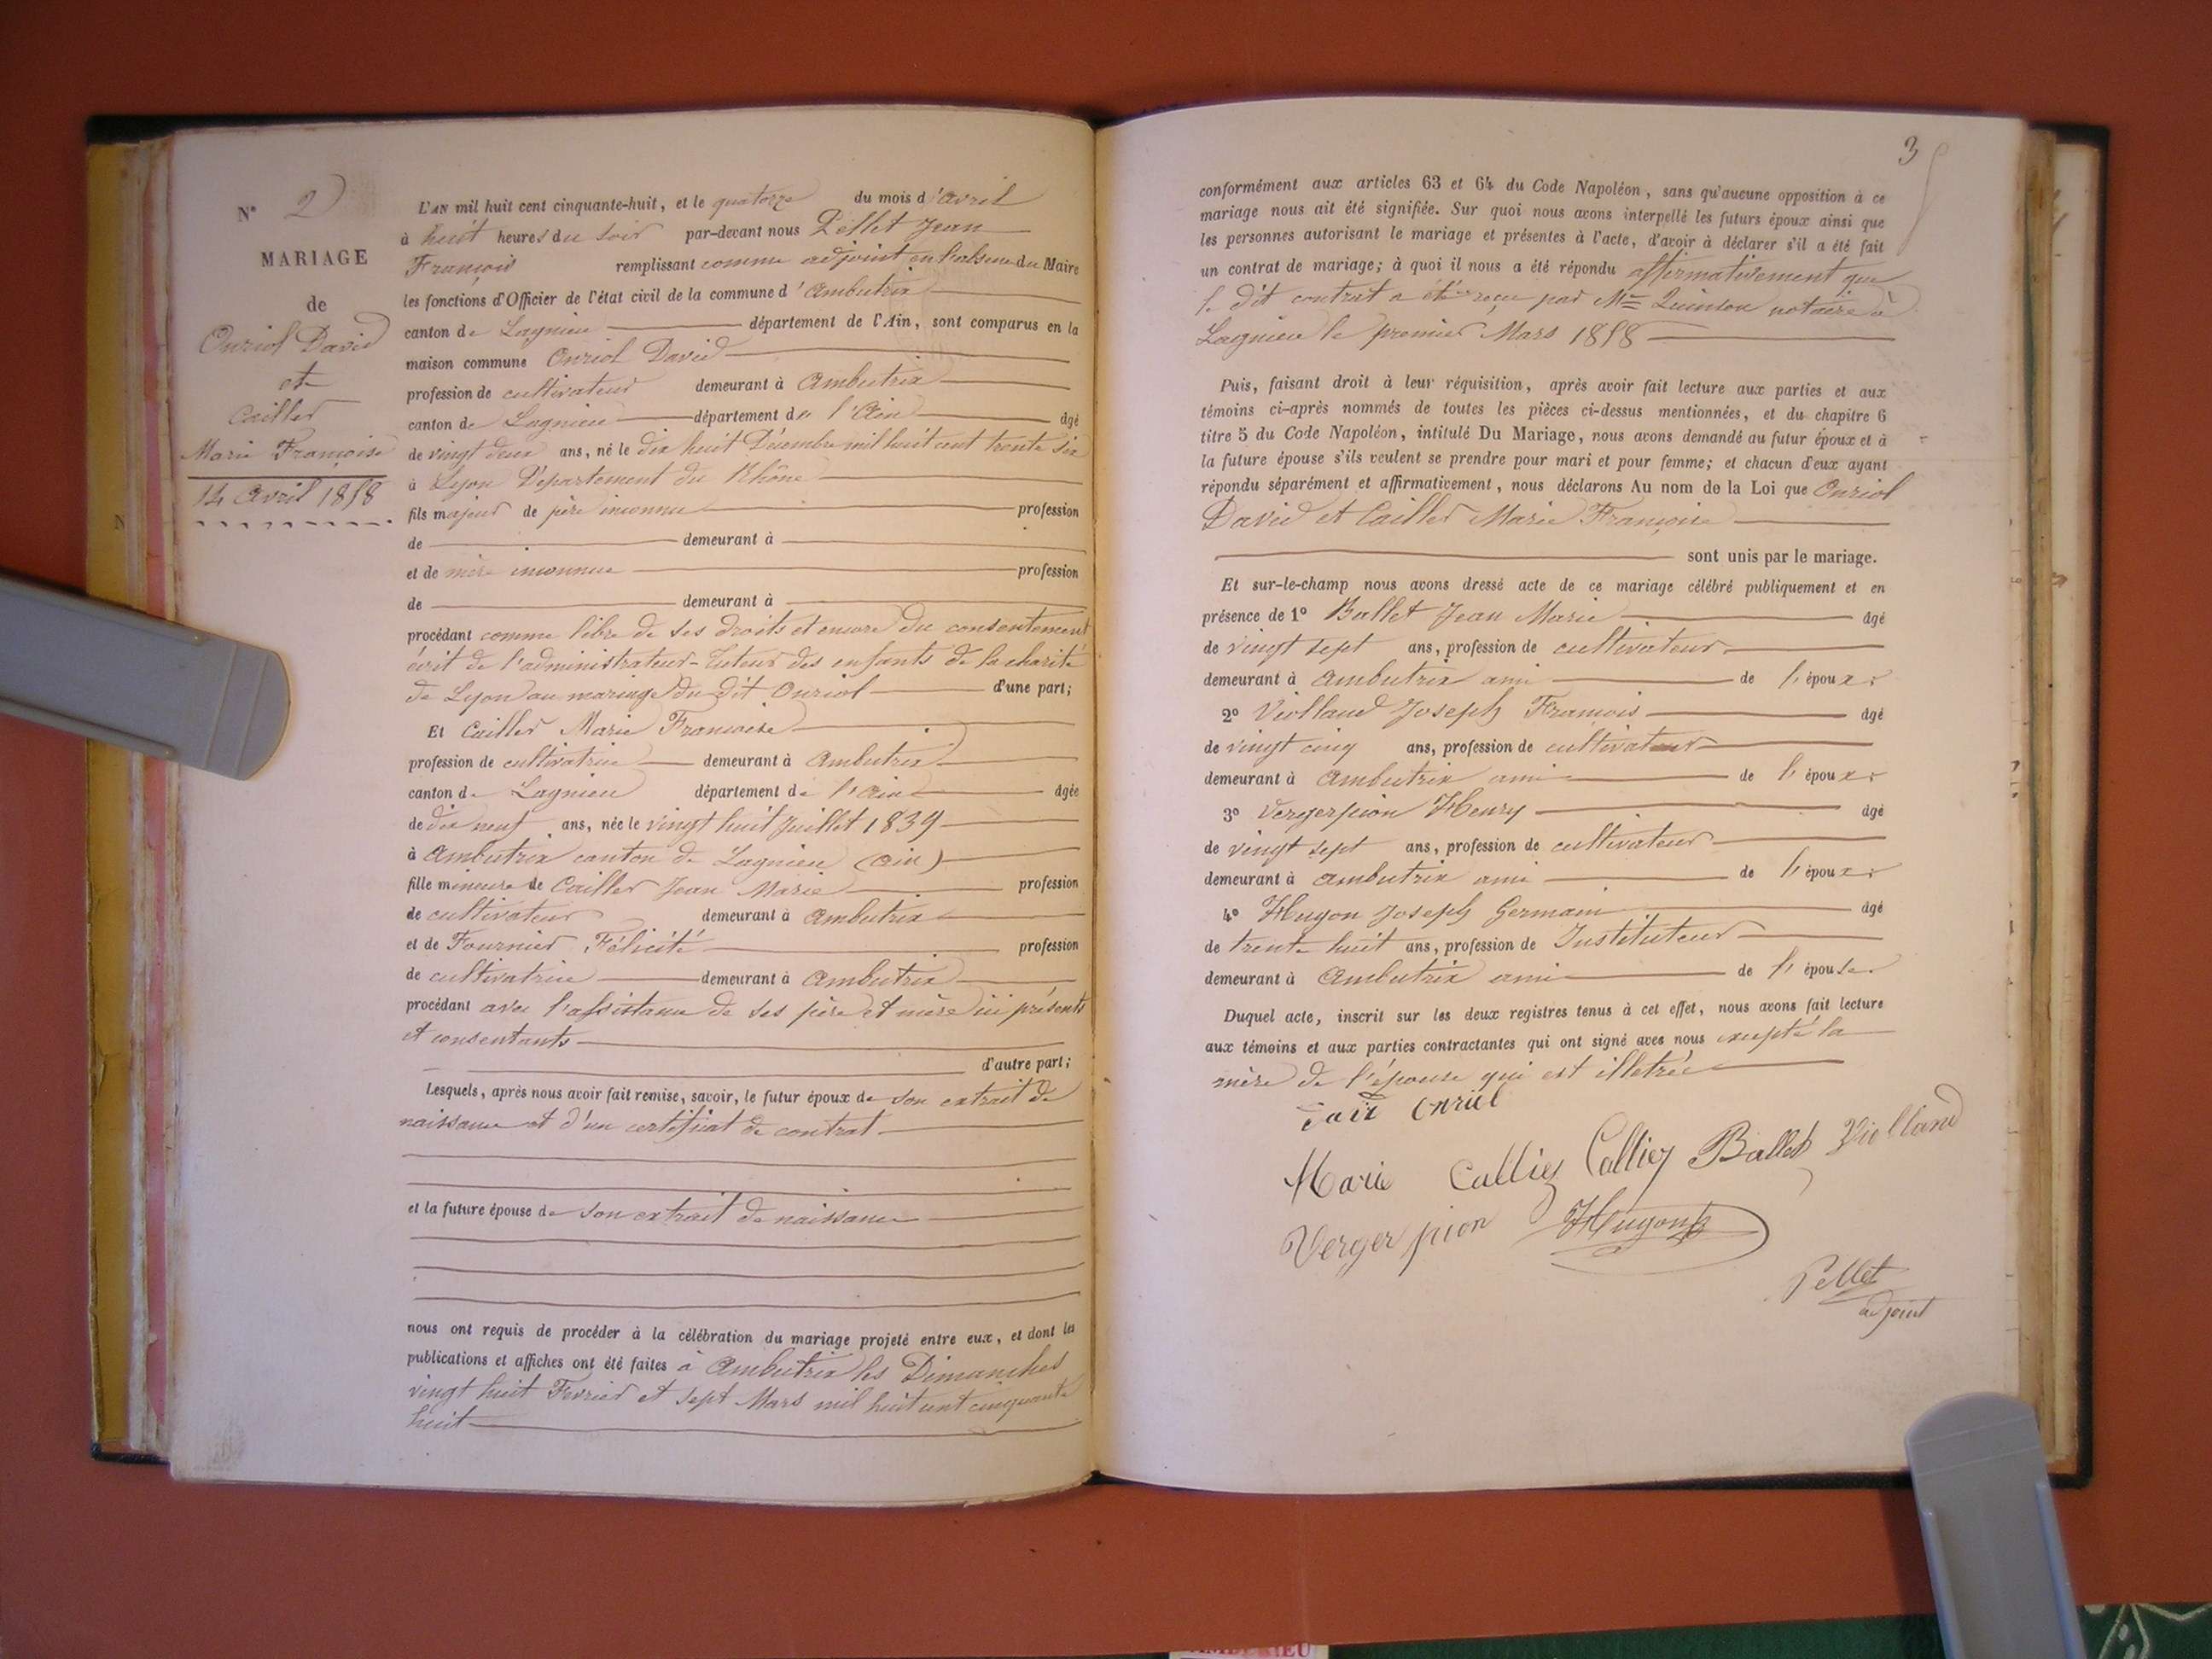 N° 2
MARIAGE
de
Onriol David
et
Cailler
Marie Françoise
14 Avril 1858
L'AN mil huit cent cinquante-huit, et le quatorze du mois d'avril
à huit heures du soir par-devant nous Pellet Jean
François remplissant comme adjoint en l'absence du Maire
les fonctions d'Officier de l'état civil de la commune d'Ambutrix
canton de Lagnieu département de l'Ain, sont comparus en la
maison commune Onriol David
profession de cultivateur demeurant à Ambutrix
canton de Lagnieu département de l'Ain âgé
de vingt deux ans, né le dix huit Décembre mil huit cent trente six
à Lyon Département du Rhône
fils majeur de père inconnu profession
de demeurant à
et de mère inconnue profession
de demeurant à
procédant comme libre de ses droits et encore du consentement
écrit de l'administrateur-Tuteur des enfants de la charité
de Lyon au mariage du dit Onriol d'une part;
Et Cailler Marie Françoise
profession de cultivatrice demeurant à Ambutrix
canton de Lagnieu département de l'Ain âgée
de dix neuf ans, née le vingt huit Juillet 1839
à Ambutrix canton de Lagnieu (Ain)
fille mineure de Cailler Jean Marie profession
de cultivateur demeurant à Ambutrix
et de Fournier Félicité profession
de cultivatrice demeurant à Ambutrix
procédant avec l'assistance de ses père et mère ici présents
et consentants
d'autre part;
Lesquels, après nous avoir fait remise, savoir, le futur époux de son extrait de
naissance et d'un certificat de contrat
et la future épouse de son extrait de naissance
nous ont requis de procéder à la célébration du mariage projeté entre eux, et dont les
publications et affiches ont été faites à Ambutrix les Dimanches
vingt huit Fevrier et sept Mars mil huit cent cinquante
huit
3
conformément aux articles 63 et 64 du Code Napoléon, sans qu'aucune opposition à ce
mariage nous ait été signifiée. Sur quoi nous avons interpellé les futurs époux ainsi que
les personnes autorisant le mariage et présentes à l'acte, d'avoir à déclarer s'il a été fait
un contrat de mariage; à quoi il nous a été répondu affirmativement que
le dit contrat a été reçu par Me Quinson notaire à
Lagnieu le premier Mars 1858
Puis, faisant droit à leur réquisition, après avoir fait lecture aux parties et aux
témoins ci-après nommés de toutes les pièces ci-dessus mentionnées, et du chapitre 6
titre 5 du Code Napoléon, intitulé Du Mariage, nous avons demandé au futur époux et à
la future épouse s'ils veulent se prendre pour mari et pour femme; et chacun d'eux ayant
répondu séparément et affirmativement, nous déclarons Au nom de la Loi que Onriol
David et Cailler Marie Françoise
sont unis par le mariage.
Et sur-le-champ nous avons dressé acte de ce mariage célébré publiquement et en
présence de 1° Ballet Jean Marie âgé
de vingt sept ans, profession de cultivateur
demeurant à Ambutrix ami de l'époux
2° Violland Joseph François âgé
de vingt cinq ans, profession de cultivateur
demeurant à Ambutrix ami de l'époux
3° Vergerpion Henry âgé
de vingt sept ans, profession de cultivateur
demeurant à Ambutrix ami de l'époux
4° Hugon Joseph Germain âgé
de trente huit ans, profession de Instituteur
demeurant à Ambutrix ami de l'épouse
Duquel acte, inscrit sur les deux registres tenus à cet effet, nous avons fait lecture
aux témoins et aux parties contractantes qui ont signé avec nous excepté la
mère de l'épouse qui est illetrée
Onriol
Marie Callier Callier Ballet Violland
Verger pion Hugon
Pellet
adjoint